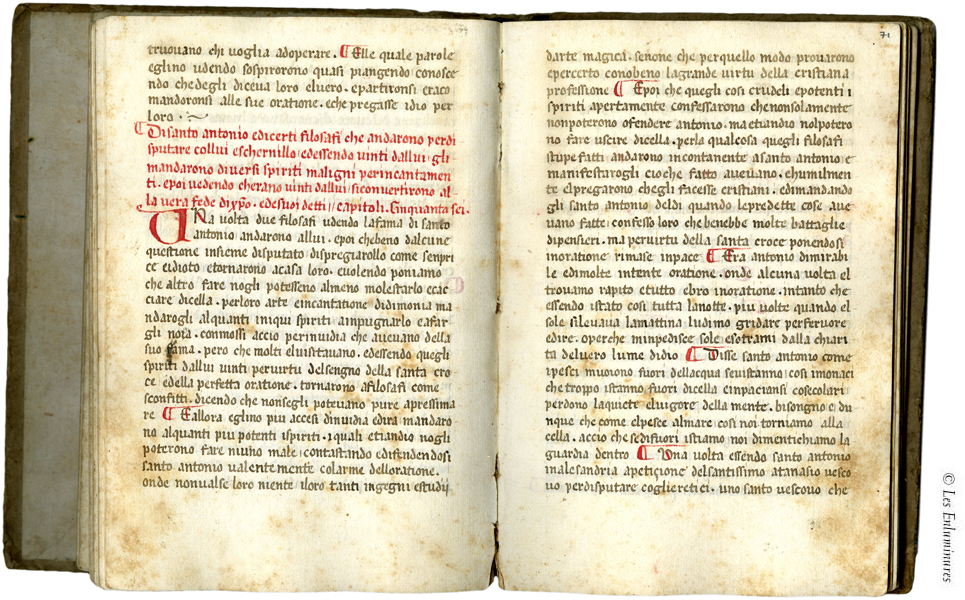 truovano chi voglia adoperare. ¶ Elle quale parole
eglino udendo sospirorono quasi piangendo conosce
ndo che degli diceva loro elvero. epartironsi eraco
mandoronsi alle sue oratione. eche pregasse idio per
loro.
¶ Disanto antonio edicerti filosafi che andarono perdi
sputare collui eschernillo. edessendo vinti dallui gli
mandarono diversi spiriti maligni perincantamen
ti. epoi vedendo cherano vinti dallui siconvertirono al
la vera fede di xpo. edesuoi detti capitoli. Cinquanta sei.
UNa volta due filosafi udendo lafama di santo
antonio andarono allui. epoi chebeno dalcune
questione insieme disputato dispregiarollo come senpri
ce eidioto etornarono acasa loro. evolendo poniamo
che altro fare nogli potesseno almeno molestarlo ecac
ciare dicella. perloro arte eincantatione didimonia ma
ndarogli alquanti iniqui spiriti ainpugnarlo eafar
gli noia. conmossi accio perinuidia che aueuano della
suo fama. pero che molti eluisitauano. edessendo quegli
spiriti dallui vinti pervirtu delsengno della santa cro
ce edella perfetta oratione. tornarono afilosafi come
sconfitti. dicendo che nonsegli potevano pure apressima
re ¶ Eallora eglino piu accesi dinuidia edira mandaro
no alquanti piu potenti ispiriti. iquali etiandio nogli
poterono fare niuno male. contastando edifendendosi
santo antonio valentemente colarme delloratione.
onde nonualse loro niente iloro tanti ingegni estudij
71
darte magica. senone che perquello modo provarono
epercerto conobeno lagrande virtu della cristiana
professione ¶ Epoi che quegli cosi crudeli epotenti i
spiriti apertamente confessarono chenonsolamente
nonpoterono ofendere antonio. ma etiandio nolpotero
no fare uscire dicella. perla qualcosa quegli filosafi
stupefatti andarono incontanente asanto antonio e
manifestarogli cioche fatto aueuano. ehumilmen
te elpregarono chegli facesse cristiani. edimandando
gli santo antonio deldi quando lepredette cose aue
uano fatte: confesso loro chebenbe molte battaglie
dipensieri. ma pervirtu della santa croce ponendosi
inoratione rimase inpace ¶ Era antonio dimirabi
le edimolte intente oratione. onde alcuna volta el
trovamo rapito etutto ebro inoratione. intanto che
essendo istato cosi tutta lanotte. piu volte quando el
sole silevava lamattina ludimo gridare perfervore
edire. operche minpedisce sole esotrami dalla chiari
ta delvero lume didio ¶ Disse santo antonio come
ipesci muoiono fuori dellacqua sevistanno: cosi imonaci
che troppo istanno fuori dicella einpacciansi cosecolari
perdono laquiete elvigore della mente. bisongno e du
nque che come elpesce almare cosi noi torniamo alla
cella. accio che sedifuori istiamo noi dimentichiamo la
guardia dentro ¶ Una volta essendo santo antonio
inalesandria apetitione delsantissimo atanasio vesco
uo perdisputare coglieretici. uno santo vescouo che
© Les Enluminures